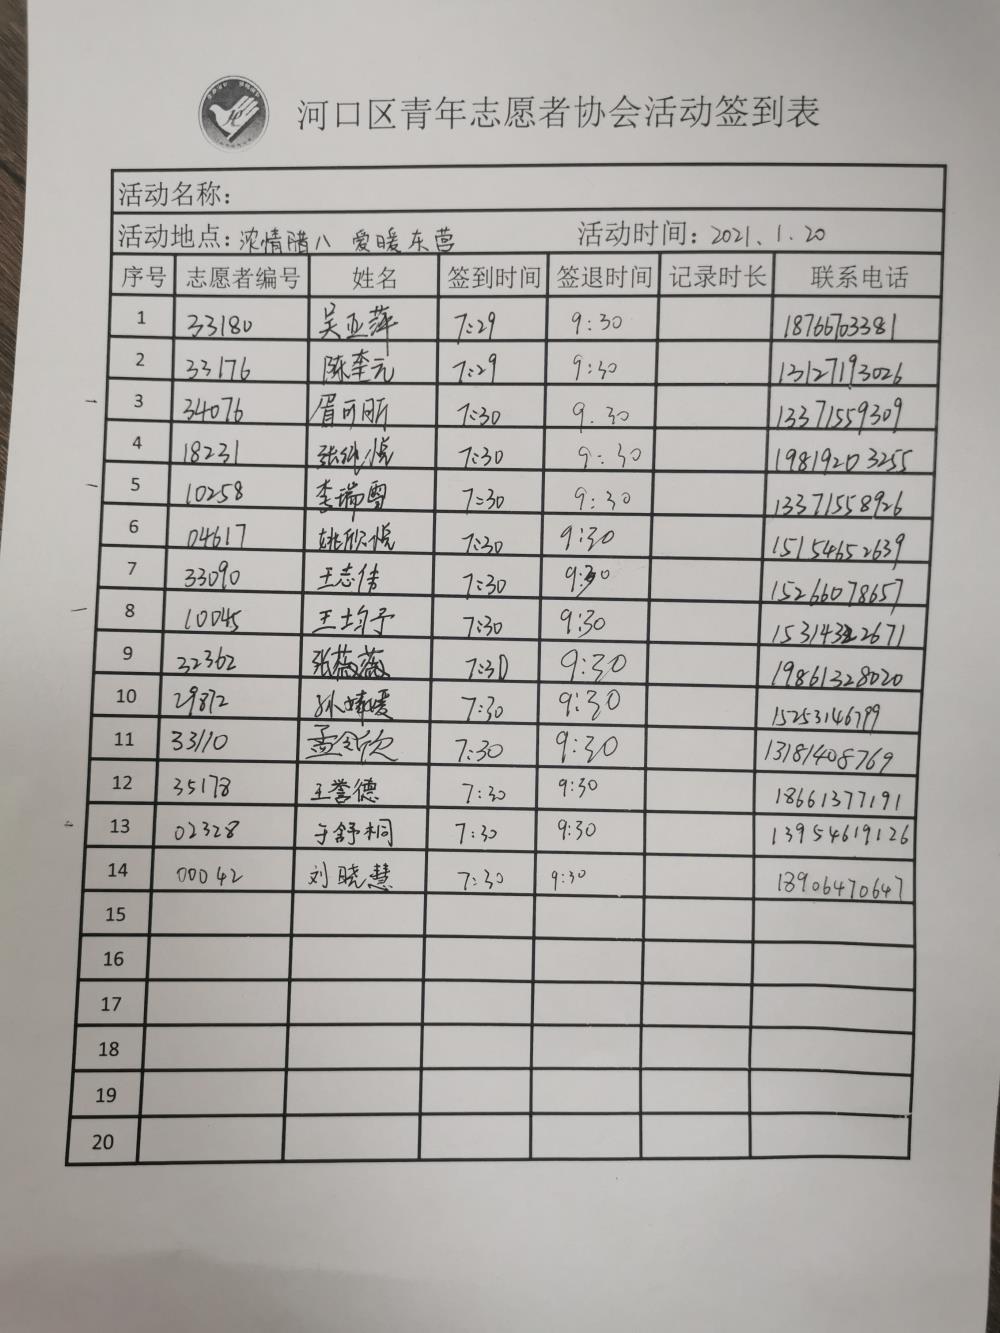 河口区青年志愿者协会活动签到表
活动名称：
活动地点：浓情腊八 爱暖东营 活动时间：2021.1.20
序号 志愿者编号 姓名 签到时间 签退时间 记录时长 联系电话
1 33180 吴亚萍 7:29 9:30 18766703381
2 33176 陈奎元 7:29 9:30 13127193026
3 34076 眉可昕 7:30 9.30 13371559309
4 18231 张纯悦 7:30 9:30 19819203255
5 10258 李瑞雪 7:30 9:30 13371558926
6 04617 姚欣悦 7:30 9:30 15154652639
7 33090 王志伟 7:30 9:30 15266078657
8 10045 王均予 7:30 9:30 15314322671
9 32362 张薇薇 7:30 9:30 19861328020
10 29872 孙婧媛 7:30 9:30 15253146799
11 33110 孟令欣 7:30 9:30 13181408769
12 35178 王誉德 7:30 9:30 18661377191
13 02328 于舒桐 7:30 9:30 13954619126
14 00042 刘晓慧 7:30 9:30 18906470647
15
16
17
18
19
20